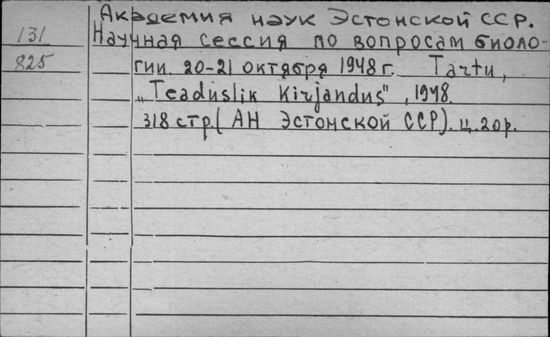 Академия наук Эстонской ССР.
131 Научная сессия по вопросам биоло-
825 гии. 20-21 октября 1948 г. Tartu,
„Teaduslik Kirjandus", 1948.
318 стр. (АН Эстонской ССР). ц. 20 р.